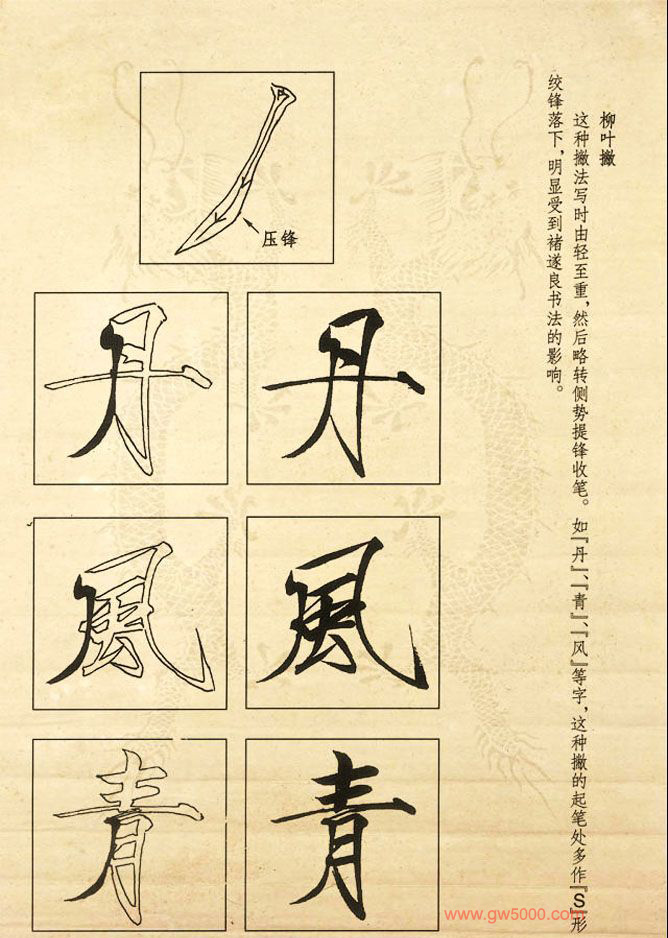 柳叶撇
这种撇法写时由轻至重，然后略转侧势提锋收笔。如『丹』、『青』、『风』等字，这种撇的起笔处多作『S』形
绞锋落下，明显受到褚遂良书法的影响。
压锋
丹 丹
風 風
青 青
www.gw5000.com